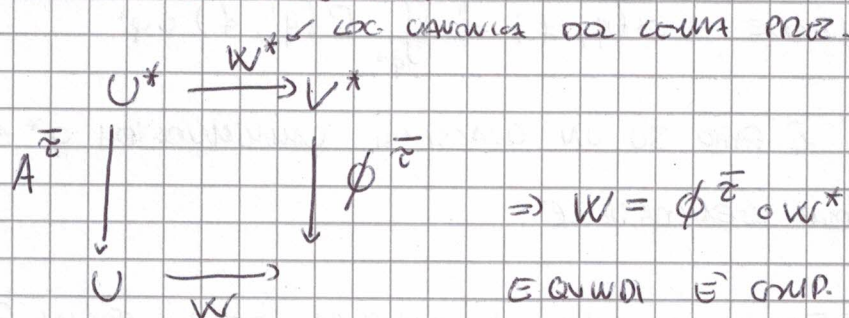 W* ↙ LOC. CANONICA DEL LEMMA PREC.
U* → V*
A^τ̄ ↓ ↓ φ^τ̄
⇒ W = φ^τ̄ ∘ W*
U → W
E QUINDI E' COMP.